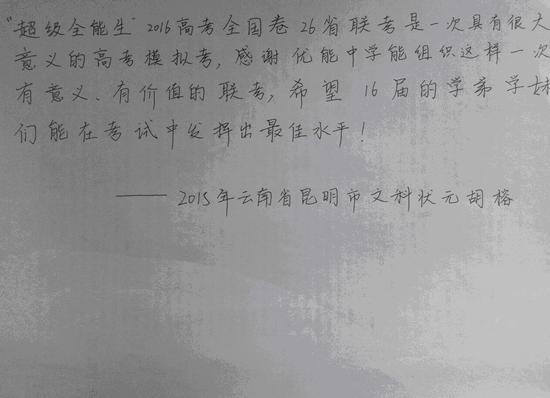 "超级全能生"2016高考全国卷26省联考是一次具有很大
意义的高考模拟考，感谢优能中学能组织这样一次
有意义、有价值的联考，希望16届的学弟学妹
们能在考试中发挥出最佳水平！
——2015年云南省昆明市文科状元胡榕